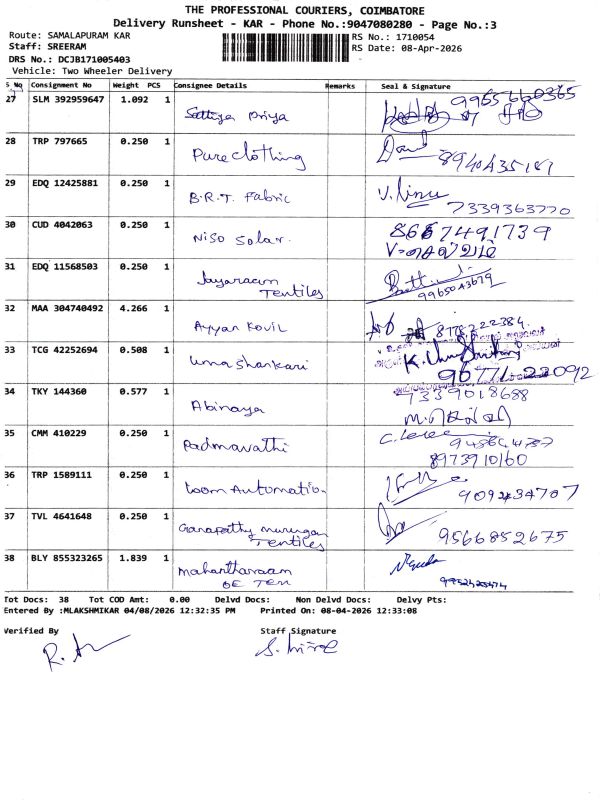 THE PROFESSIONAL COURIERS, COIMBATORE
Delivery Runsheet - KAR - Phone No.:9047080280 - Page No.:3
Route: SAMALAPURAM KAR
RS No.: 1710054
Staff: SREERAM
RS Date: 08-Apr-2026
DRS No.: DCJB171005403
Vehicle: Two Wheeler Delivery
S No Consignment No Weight PCS Consignee Details Remarks Seal & Signature
27 SLM 392959647 1.092 1 Sathya Priya 9965660365
28 TRP 797665 0.250 1 Pure clothing 8940435181
29 EDQ 12425881 0.250 1 B.R.T. Fabric V. Linu 7339363770
30 CUD 4042063 0.250 1 Niso Solar. 8667491739
31 EDQ 11568503 0.250 1 Jayaraam Tentiles 9965043679
32 MAA 304740492 4.266 1 Ayyan Kovil 8778222384
33 TCG 42252694 0.508 1 Uma Shankari 96771-23092
34 TKY 144360 0.577 1 Abinaya 7339018688
35 CMM 410229 0.250 1 Padmavathi 8973910160
36 TRP 1589111 0.250 1 Loom Automation 9092434707
37 TVL 4641648 0.250 1 Ganapathy murugan Tentiles 9566852675
38 BLY 855323265 1.839 1 Mahantharaam OE Ten
Tot Docs: 38 Tot COD Amt: 0.00 Delvd Docs: Non Delvd Docs: Delvy Pts:
Entered By :MLAKSHMIKAR 04/08/2026 12:32:35 PM Printed On: 08-04-2026 12:33:08
Verified By Staff Signature